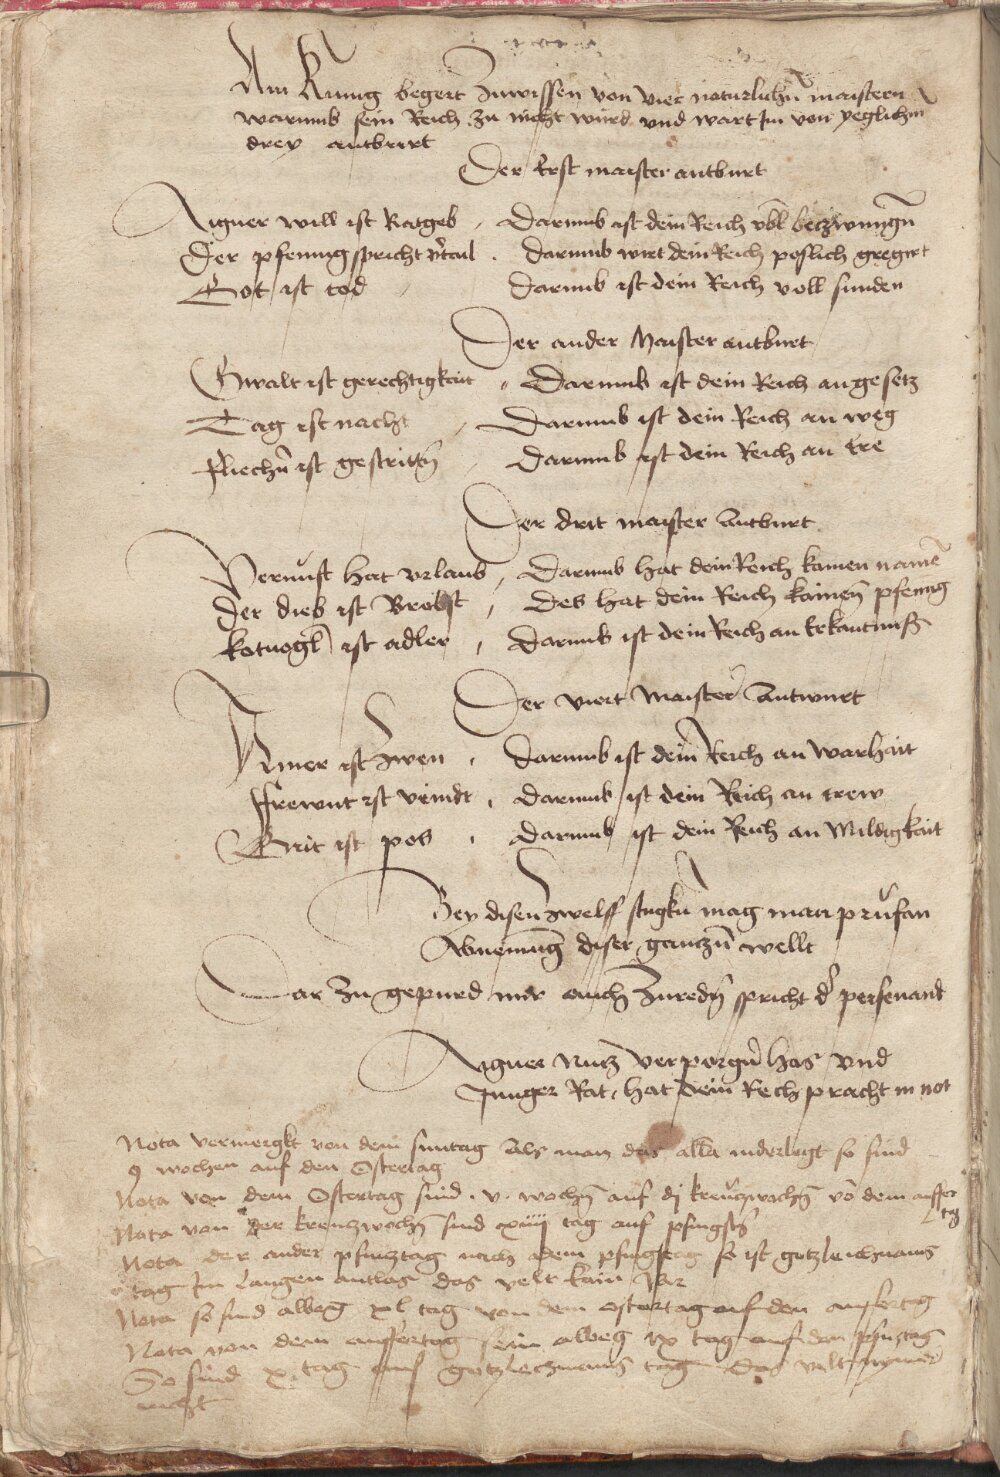 Ain Kunig begert zuwissen von vier naturlichn maistern
warumb sein Reich zu nicht wurd und wart Im von yeglichm
drey antburt
Der Erst maister antburt
Aigner will ist Ratgeb, Darumb ist dein Reich vbl beczwungn
Der pfennig spricht vrtail. Darumb wirt dein Reich poslich gregirt
Got ist tod Darumb ist dein Reich voll sunden
Der ander Maister antburt
Gwalt ist gerechtigkait, Darumb ist dein Reich an gesetz
Tag ist nacht, Darumb ist dein Reich an weg
Fliechn ist gestrittn, Darumb ist dein Reich an Ere
Der drit maister Antburt
Vernuft hat vrlaub, Darumb hat dein Reich kainen namen
Der dieb ist Brobst, Des hat dein Reich kainen pfennig
kotuogl ist adler, Darumb ist dein Reich an Erkantnuß
Der viert Maister Antwurt
Ainer ist Zwen, Darumb ist dein Reich an Warhait
Frewnt ist veindt, Darumb ist dein Reich an trew
Guit ist pos, Darumb ist dein Reich an Mildigkait
Bey disen Zwelff stugkn mag man prufan
Abnemung diser ganczn wellt
Dar zu gepurd mir auch Zuredn spricht der persenant
Aigner Nutz verporgn has vnd
Junger Rat, hat dein Reich pracht in not
Nota vermergkt von dem suntag Als man das alla niderlegt so sind
9 wochen auf den Ostertag
Nota von dem Ostertag sind .v. wochn auf dj kreuczwochn von dem auffer
tg
Nota von der kreuczwochn sind xiiij tag auf pfingstn
Nota der ander pfincztag nach dem pfingstag so ist gotzleichnams
tag Im langen antlas das velt kain Jar
Nota so sind albeg xl tag von dem ostertag auf den auffertag
Nota von dem auffertag sein albeg ix tag auf den pfincztag
So sind x tag auf gotzleichnams tag das velt nymer
nicht